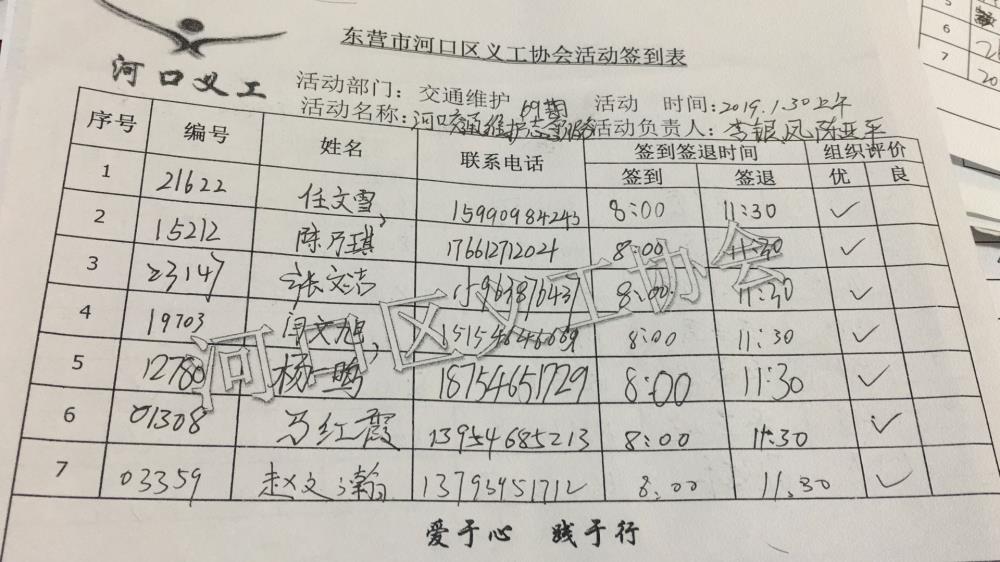 东营市河口区义工协会活动签到表
河口义工
活动部门：交通维护 69期 活动 时间：2019.1.30上午
活动名称：河口交通维护志愿服务 活动负责人：李银凤 陈亚平
序号 编号 姓名 联系电话 签到签退时间 组织评价
签到 签退 优 良
1 21622 任文雪 15990984243 8:00 11:30 ✓
2 15212 陈乃琪 17661712024 8:00 11:30 ✓
3 23147 张文洁 15963876437 8:00 11:30 ✓
4 19703 闫文旭 15154646669 8:00 11:30 ✓
5 12780 杨一鸣 18754651729 8:00 11:30 ✓
6 01308 马红霞 13954685213 8:00 11:30 ✓
7 03359 赵文瀚 13793951712 8:00 11.30 ✓
河口区义工协会
爱于心 践于行
5
6
7 20